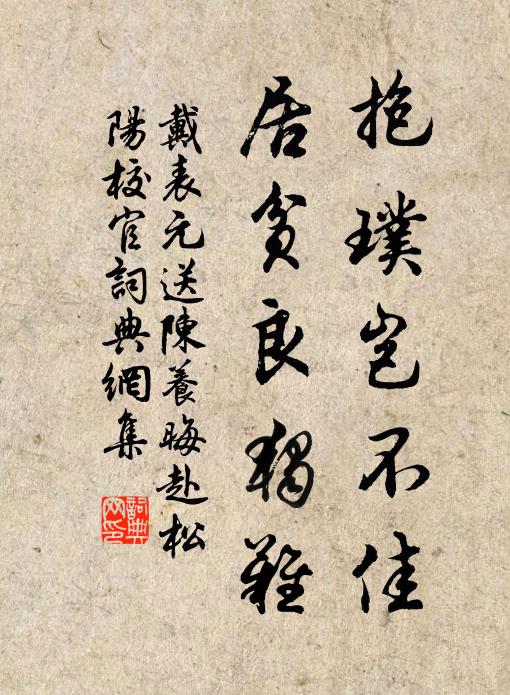 抱璞豈不佳
居貧良獨難
戴表元送陳養晦赴松
陽校官詞典網集
詞典
网印